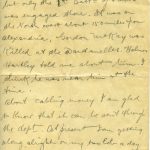 but only the 8th Batt of
was engaged there. It was on
the road most about 15 miles from
Alexandria. Gordon McKay was
killed at the Dardanelles. Wilson
Hartley told me about him I
think he was near him at the
time.
About cabling money I am glad
to know that it can be sent through
the dept. At present I am going
along alright on my two bob a day